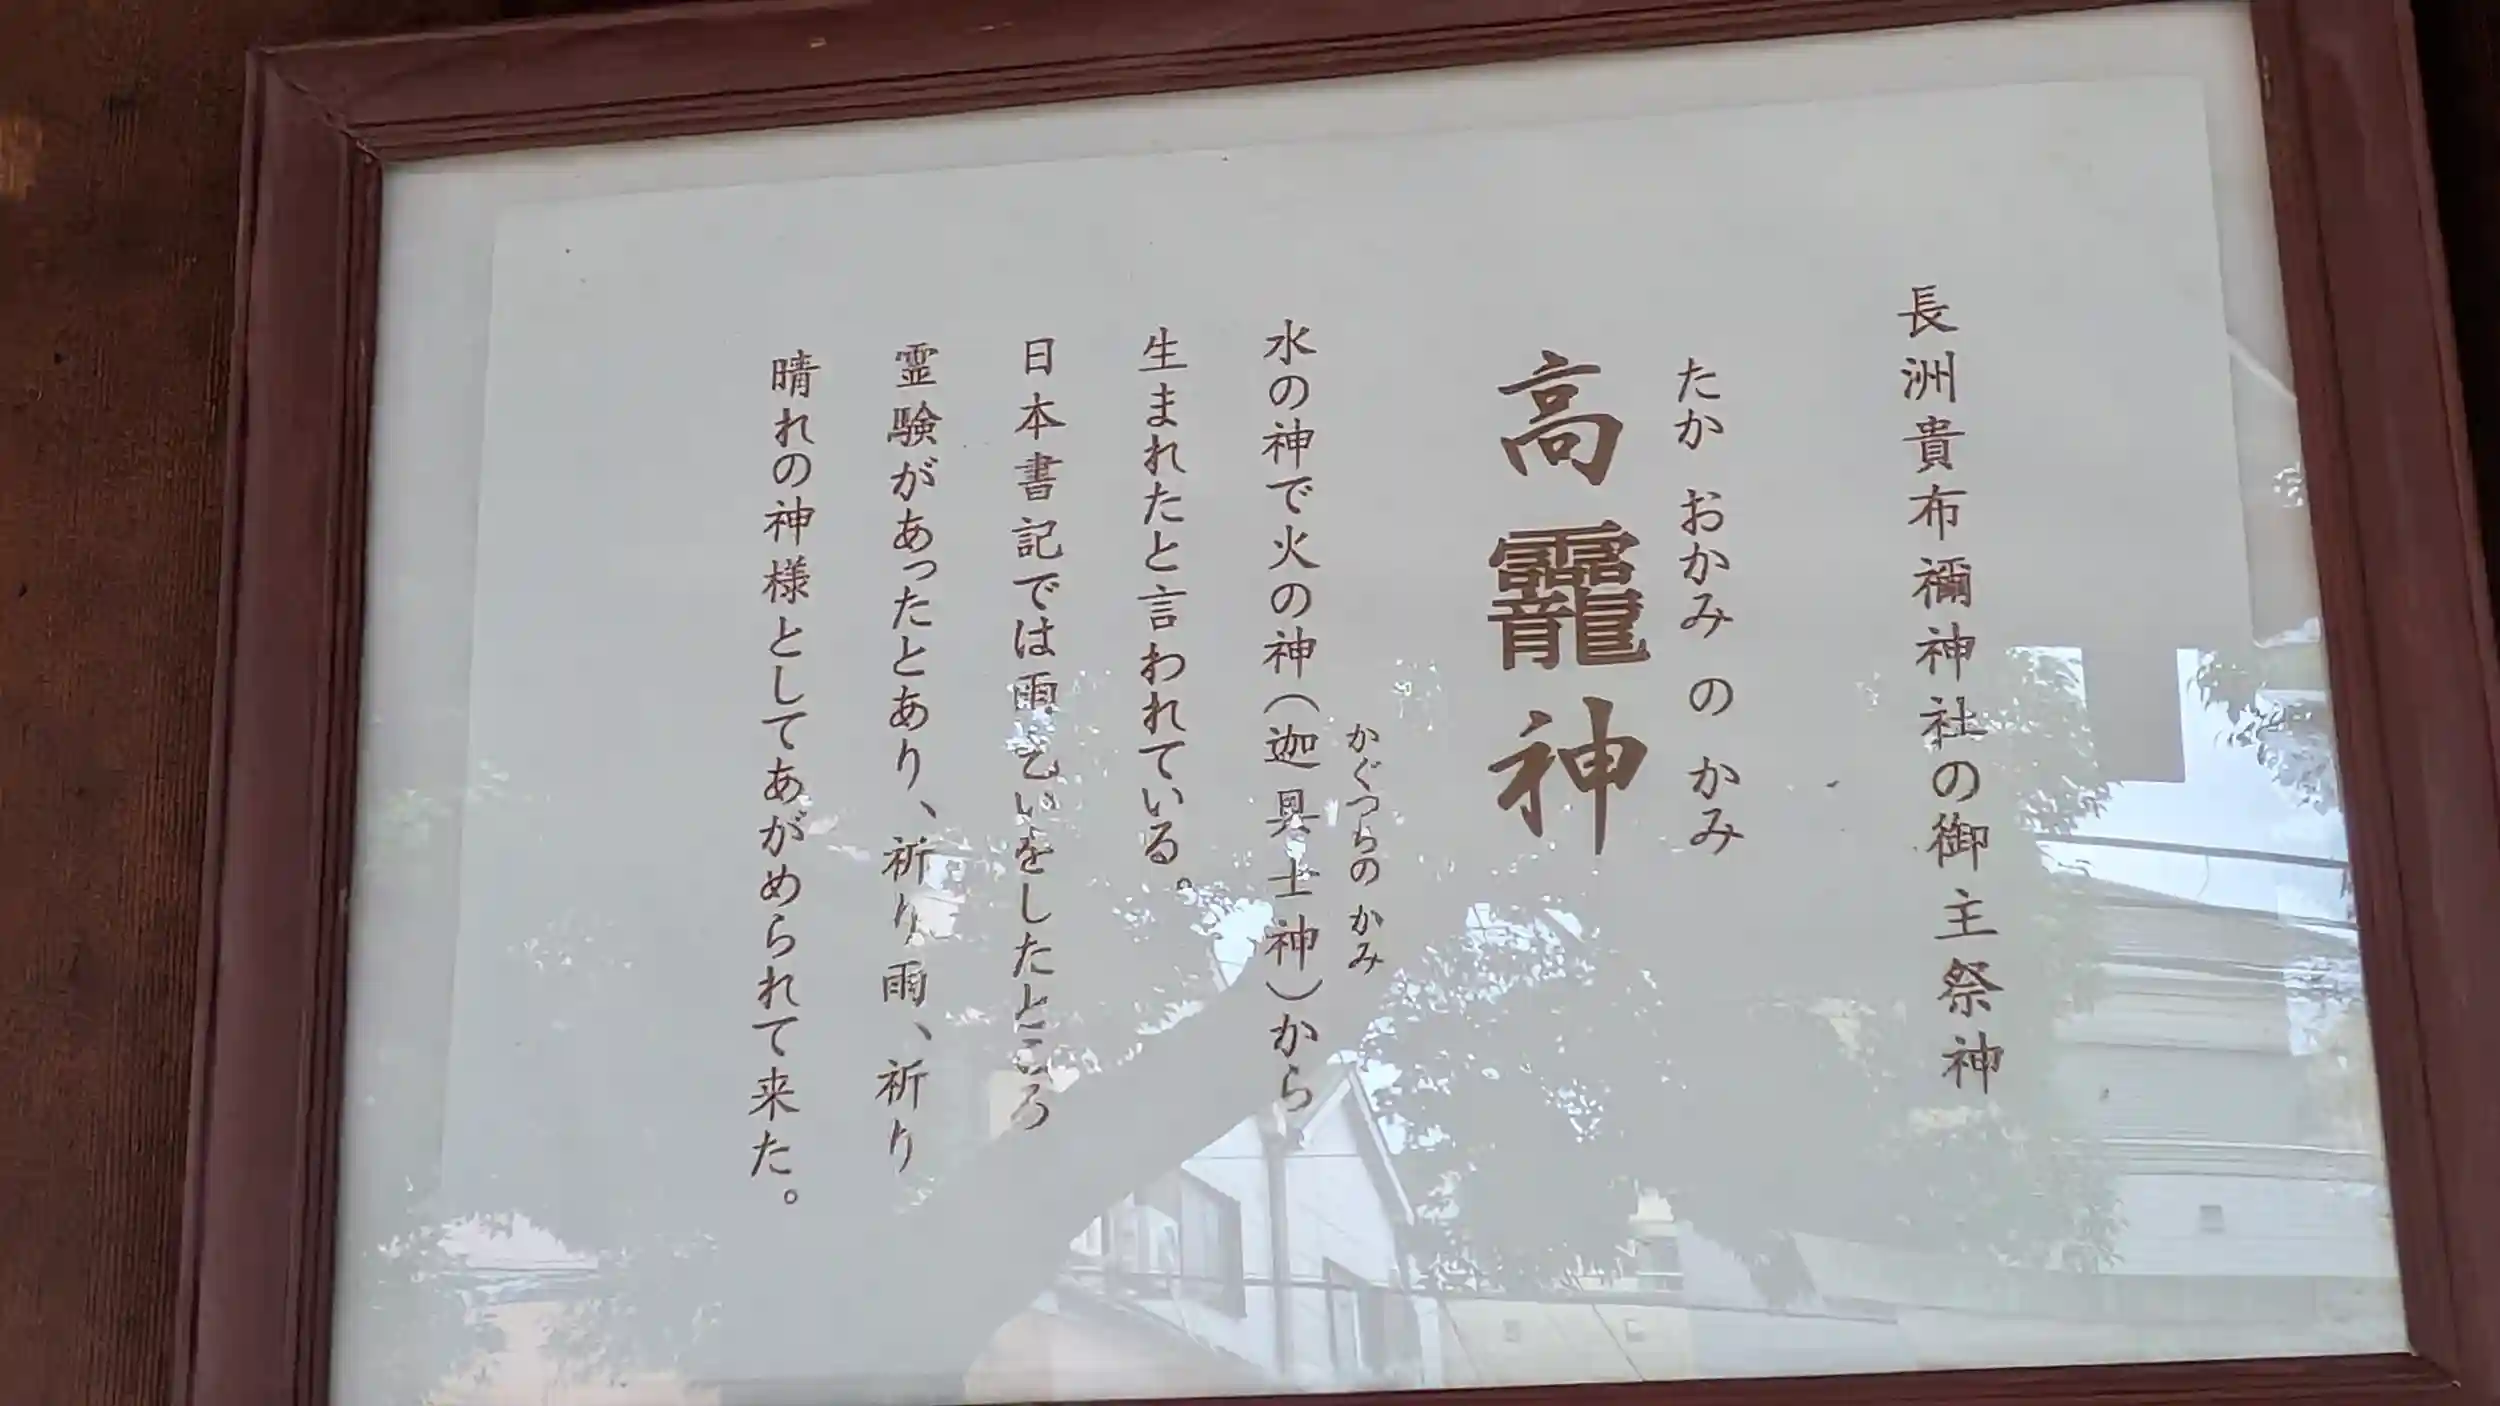 長洲貴布禰神社の御主祭神
たか おかみ の かみ
高龗神
かぐつちの かみ
水の神で火の神(迦具土神)から
生まれたと言われている。
日本書記では雨乞いをしたところ
霊験があったとあり、祈り雨、祈り
晴れの神様としてあがめられて来た。